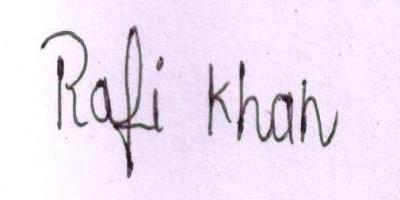 Rafi Khan